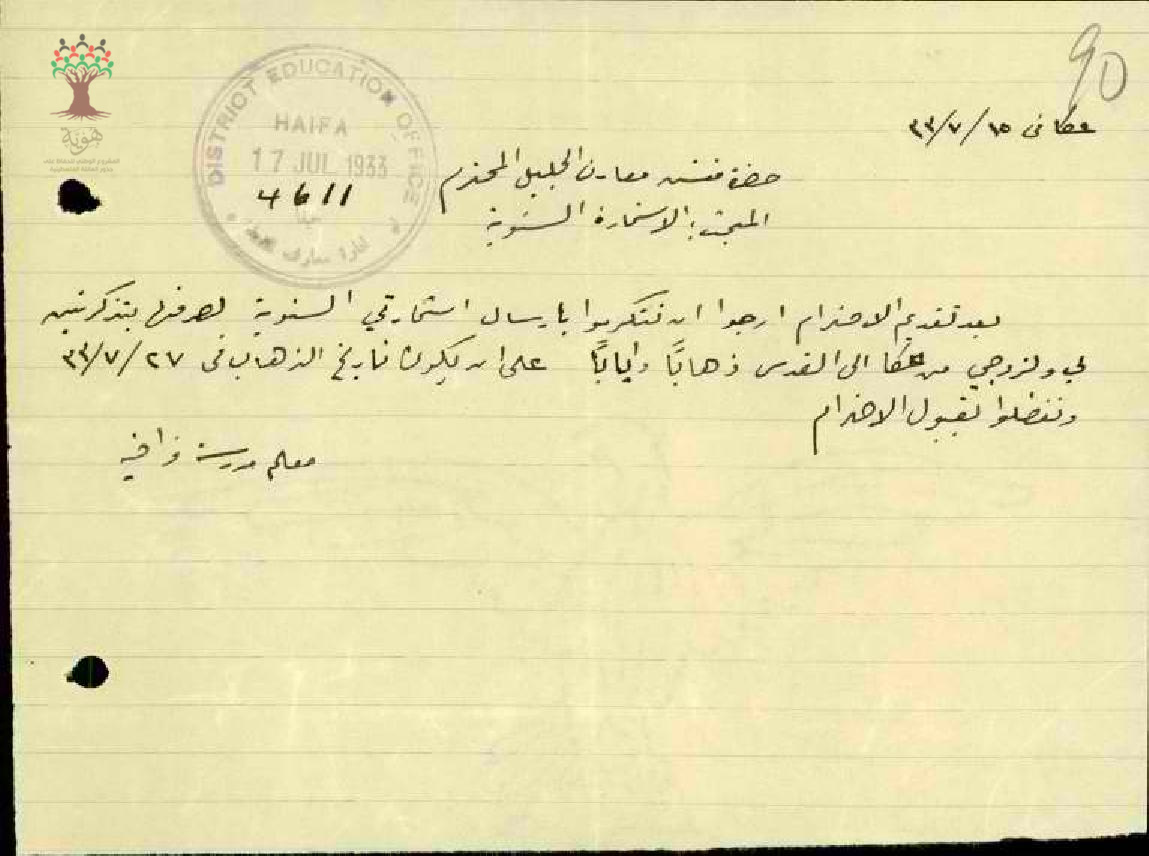 90
عكا في ١٥/٧/٣٣
DISTRICT EDUCATION OFFICE
HAIFA
17 JUL 1933
4611
حيفا
ادارة معارف
هوية
حضرة مفتش معارف الجليل المحترم
المبحث: الاستمارة السنوية
بعد تقديم الاحترام ارجوا ان تتكرموا بارسال استمارتي السنوية لصرفها بتذكرتين
لي ولزوجي من عكا الى القدس ذهابًا وايابًا على ان يكون تاريخ الذهاب في ٢٧/٧/٣٣
وتفضلوا بقبول الاحترام
معلم مدرسة